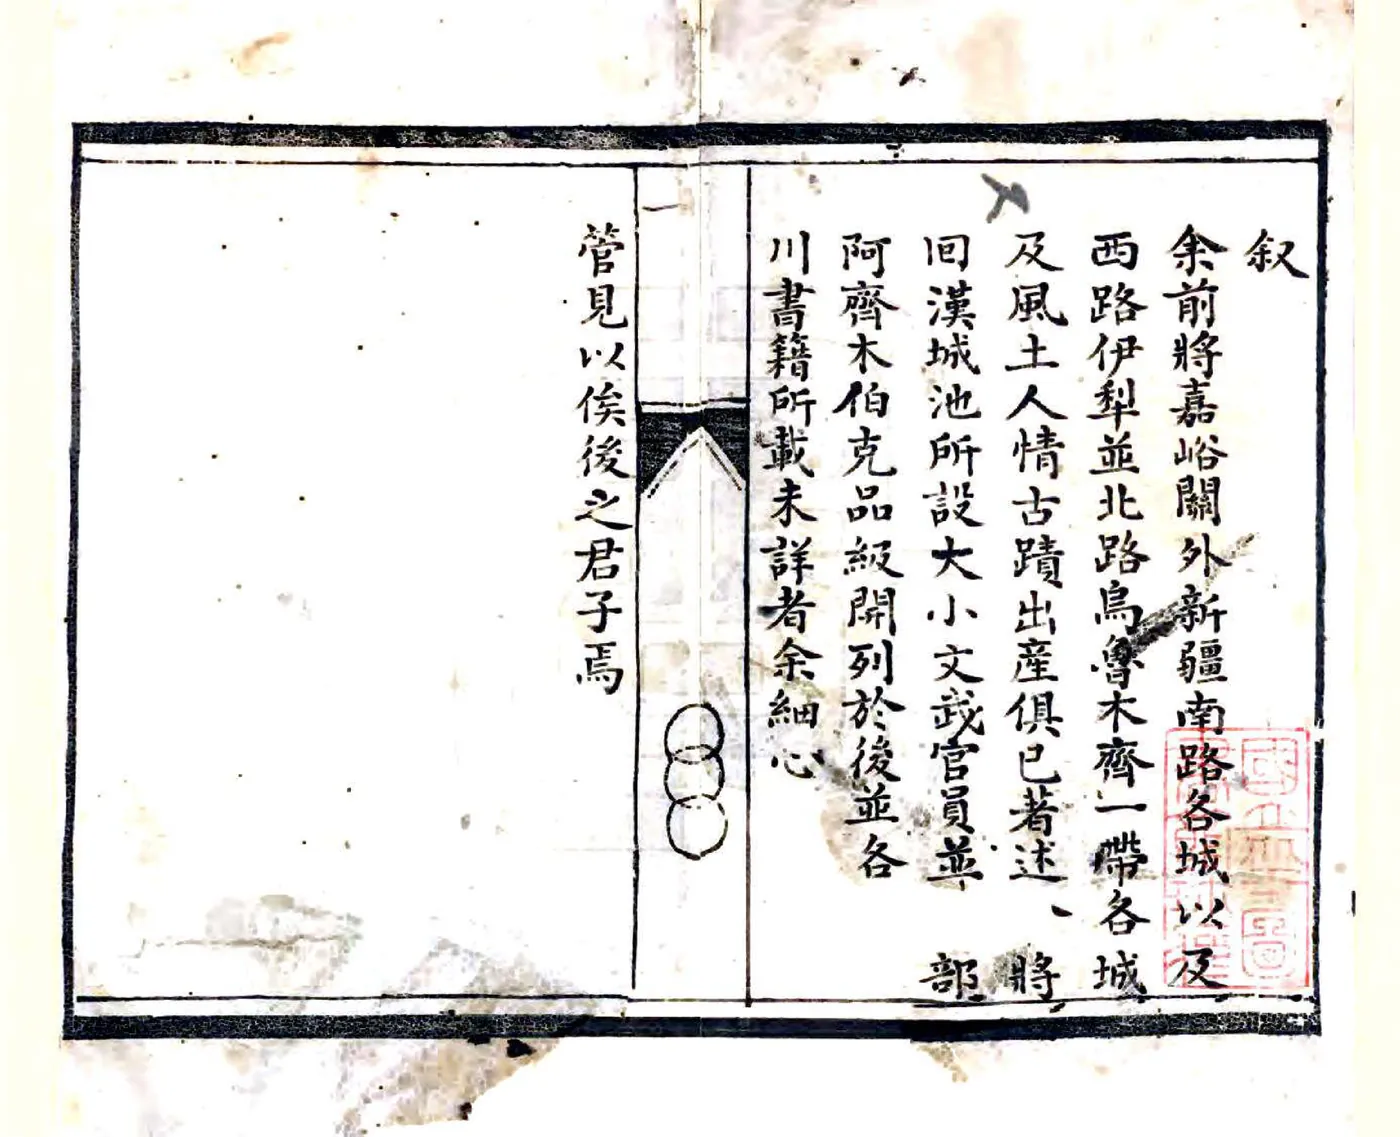 叙
余前將嘉峪關外新疆南路各城以及
西路伊犁並北路烏魯木齊一帶各城
及風土人情古蹟出產俱已著述、將
回漢城池所設大小文武官員並部
阿齊木伯克品級開列於後並各
川書籍所載未詳者余細心
一
管見以俟後之君子焉